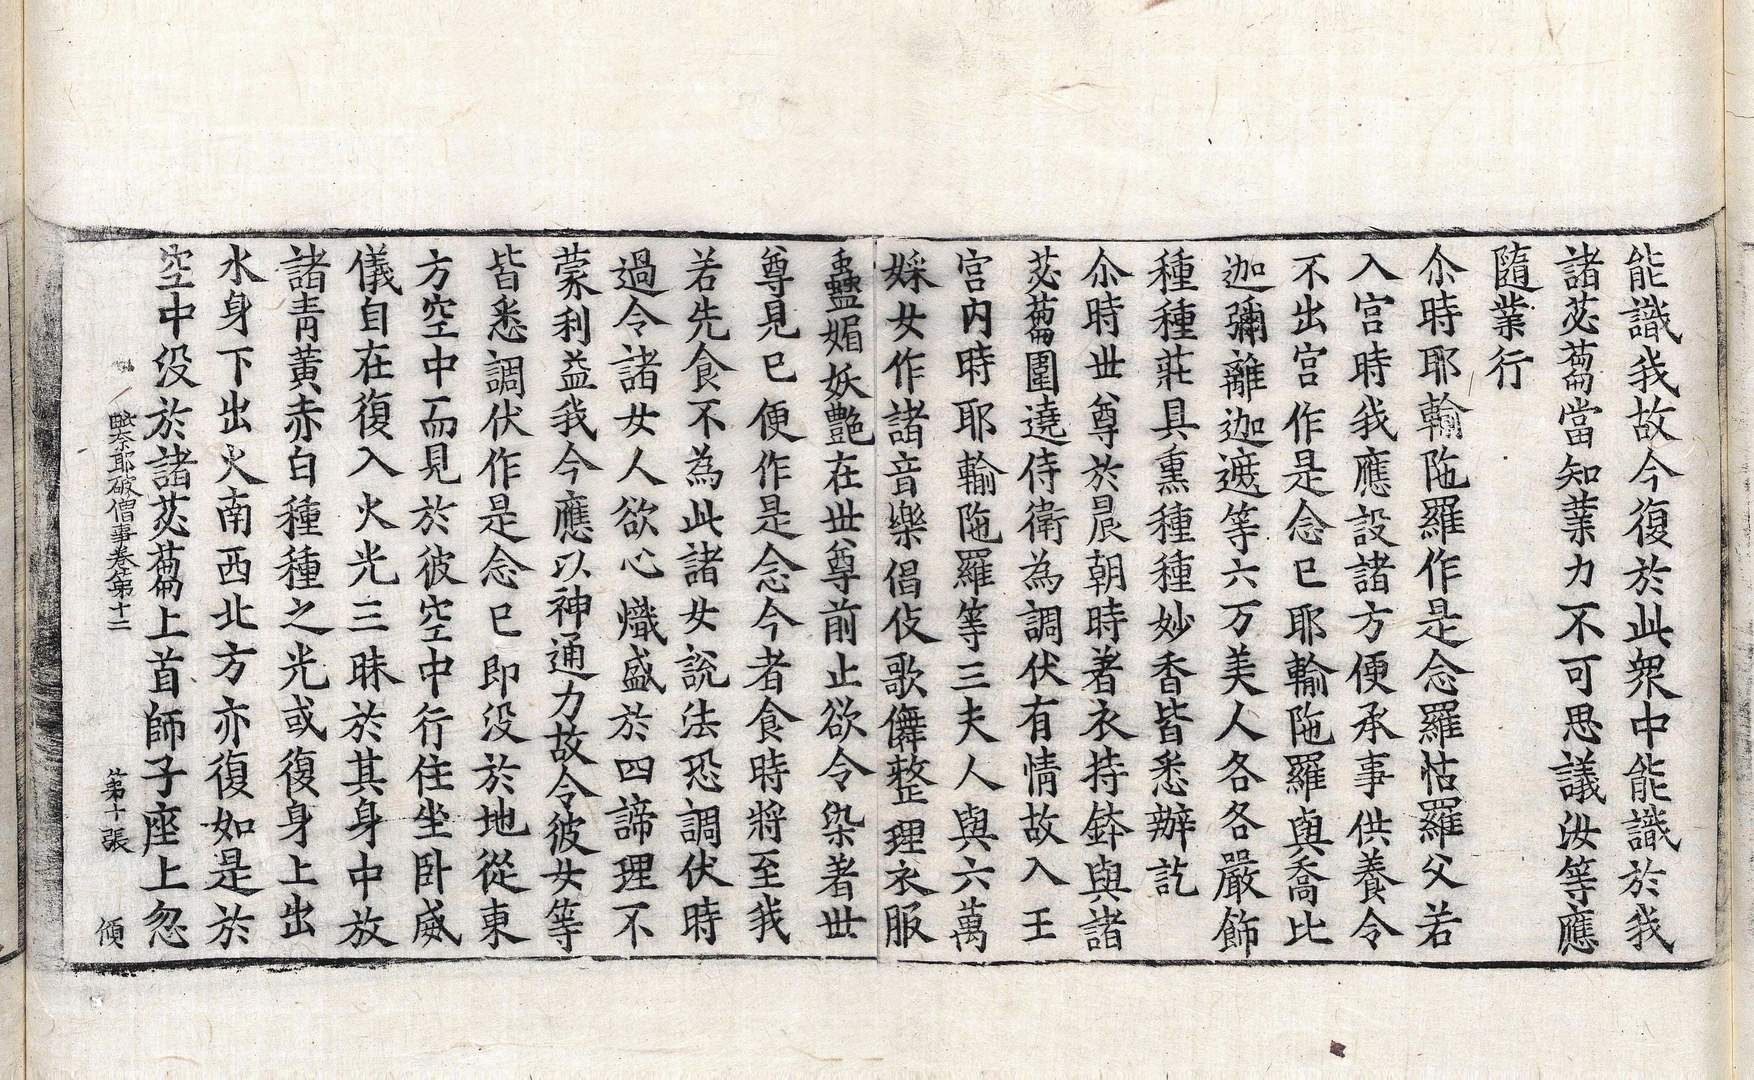 能識我故今復於此衆中能識於我
諸苾蒭當知業力不可思議汝等應
隨業行
尒時耶輸陁羅作是念羅怙羅父若
入宮時我應設諸方便承事供養令
不出宮作是念已耶輸陁羅與喬比
迦彌離迦遮等六万美人各各嚴飾
種種莊具熏種種妙香皆悉辦訖
尒時世尊於晨朝時著衣持鉢與諸
苾蒭圍遶侍衛為調伏有情故入王
宮內時耶輸陁羅等三夫人與六萬
婇女作諸音樂倡伎歌儛整理衣服
蠱媚妖艷在世尊前止欲令染著世
尊見已便作是念今者食時將至我
若先食不為此諸女說法恐調伏時
過令諸女人欲心熾盛於四諦理不
蒙利益我今應以神通力故令彼女等
皆悉調伏作是念已即沒於地從東
方空中而見於彼空中行住坐卧威
儀自在復入火光三昧於其身中放
諸青黃赤白種種之光或復身上出
水身下出火南西北方亦復如是於
空中沒於諸苾蒭上首師子座上忽
毗奈耶破僧事卷第十二 第十張 傾